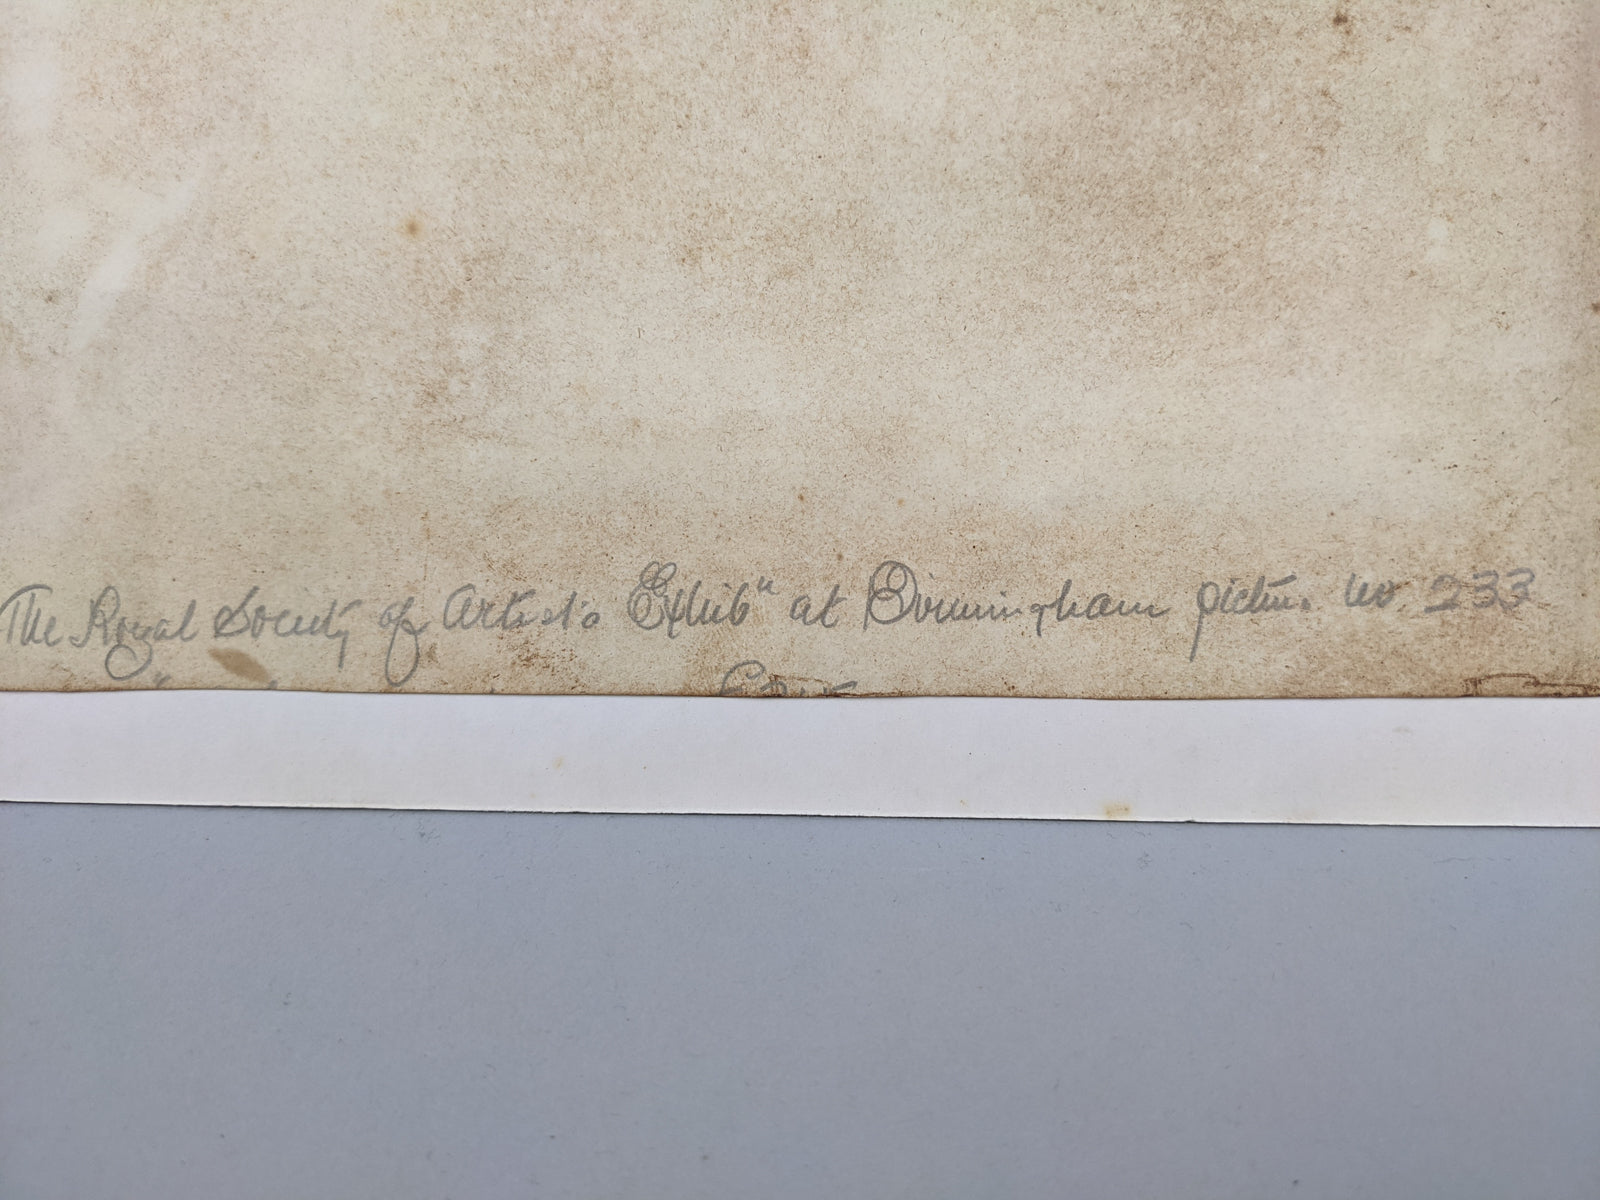 The Royal Society of Artists Exhib" at Birmingham picture no 233